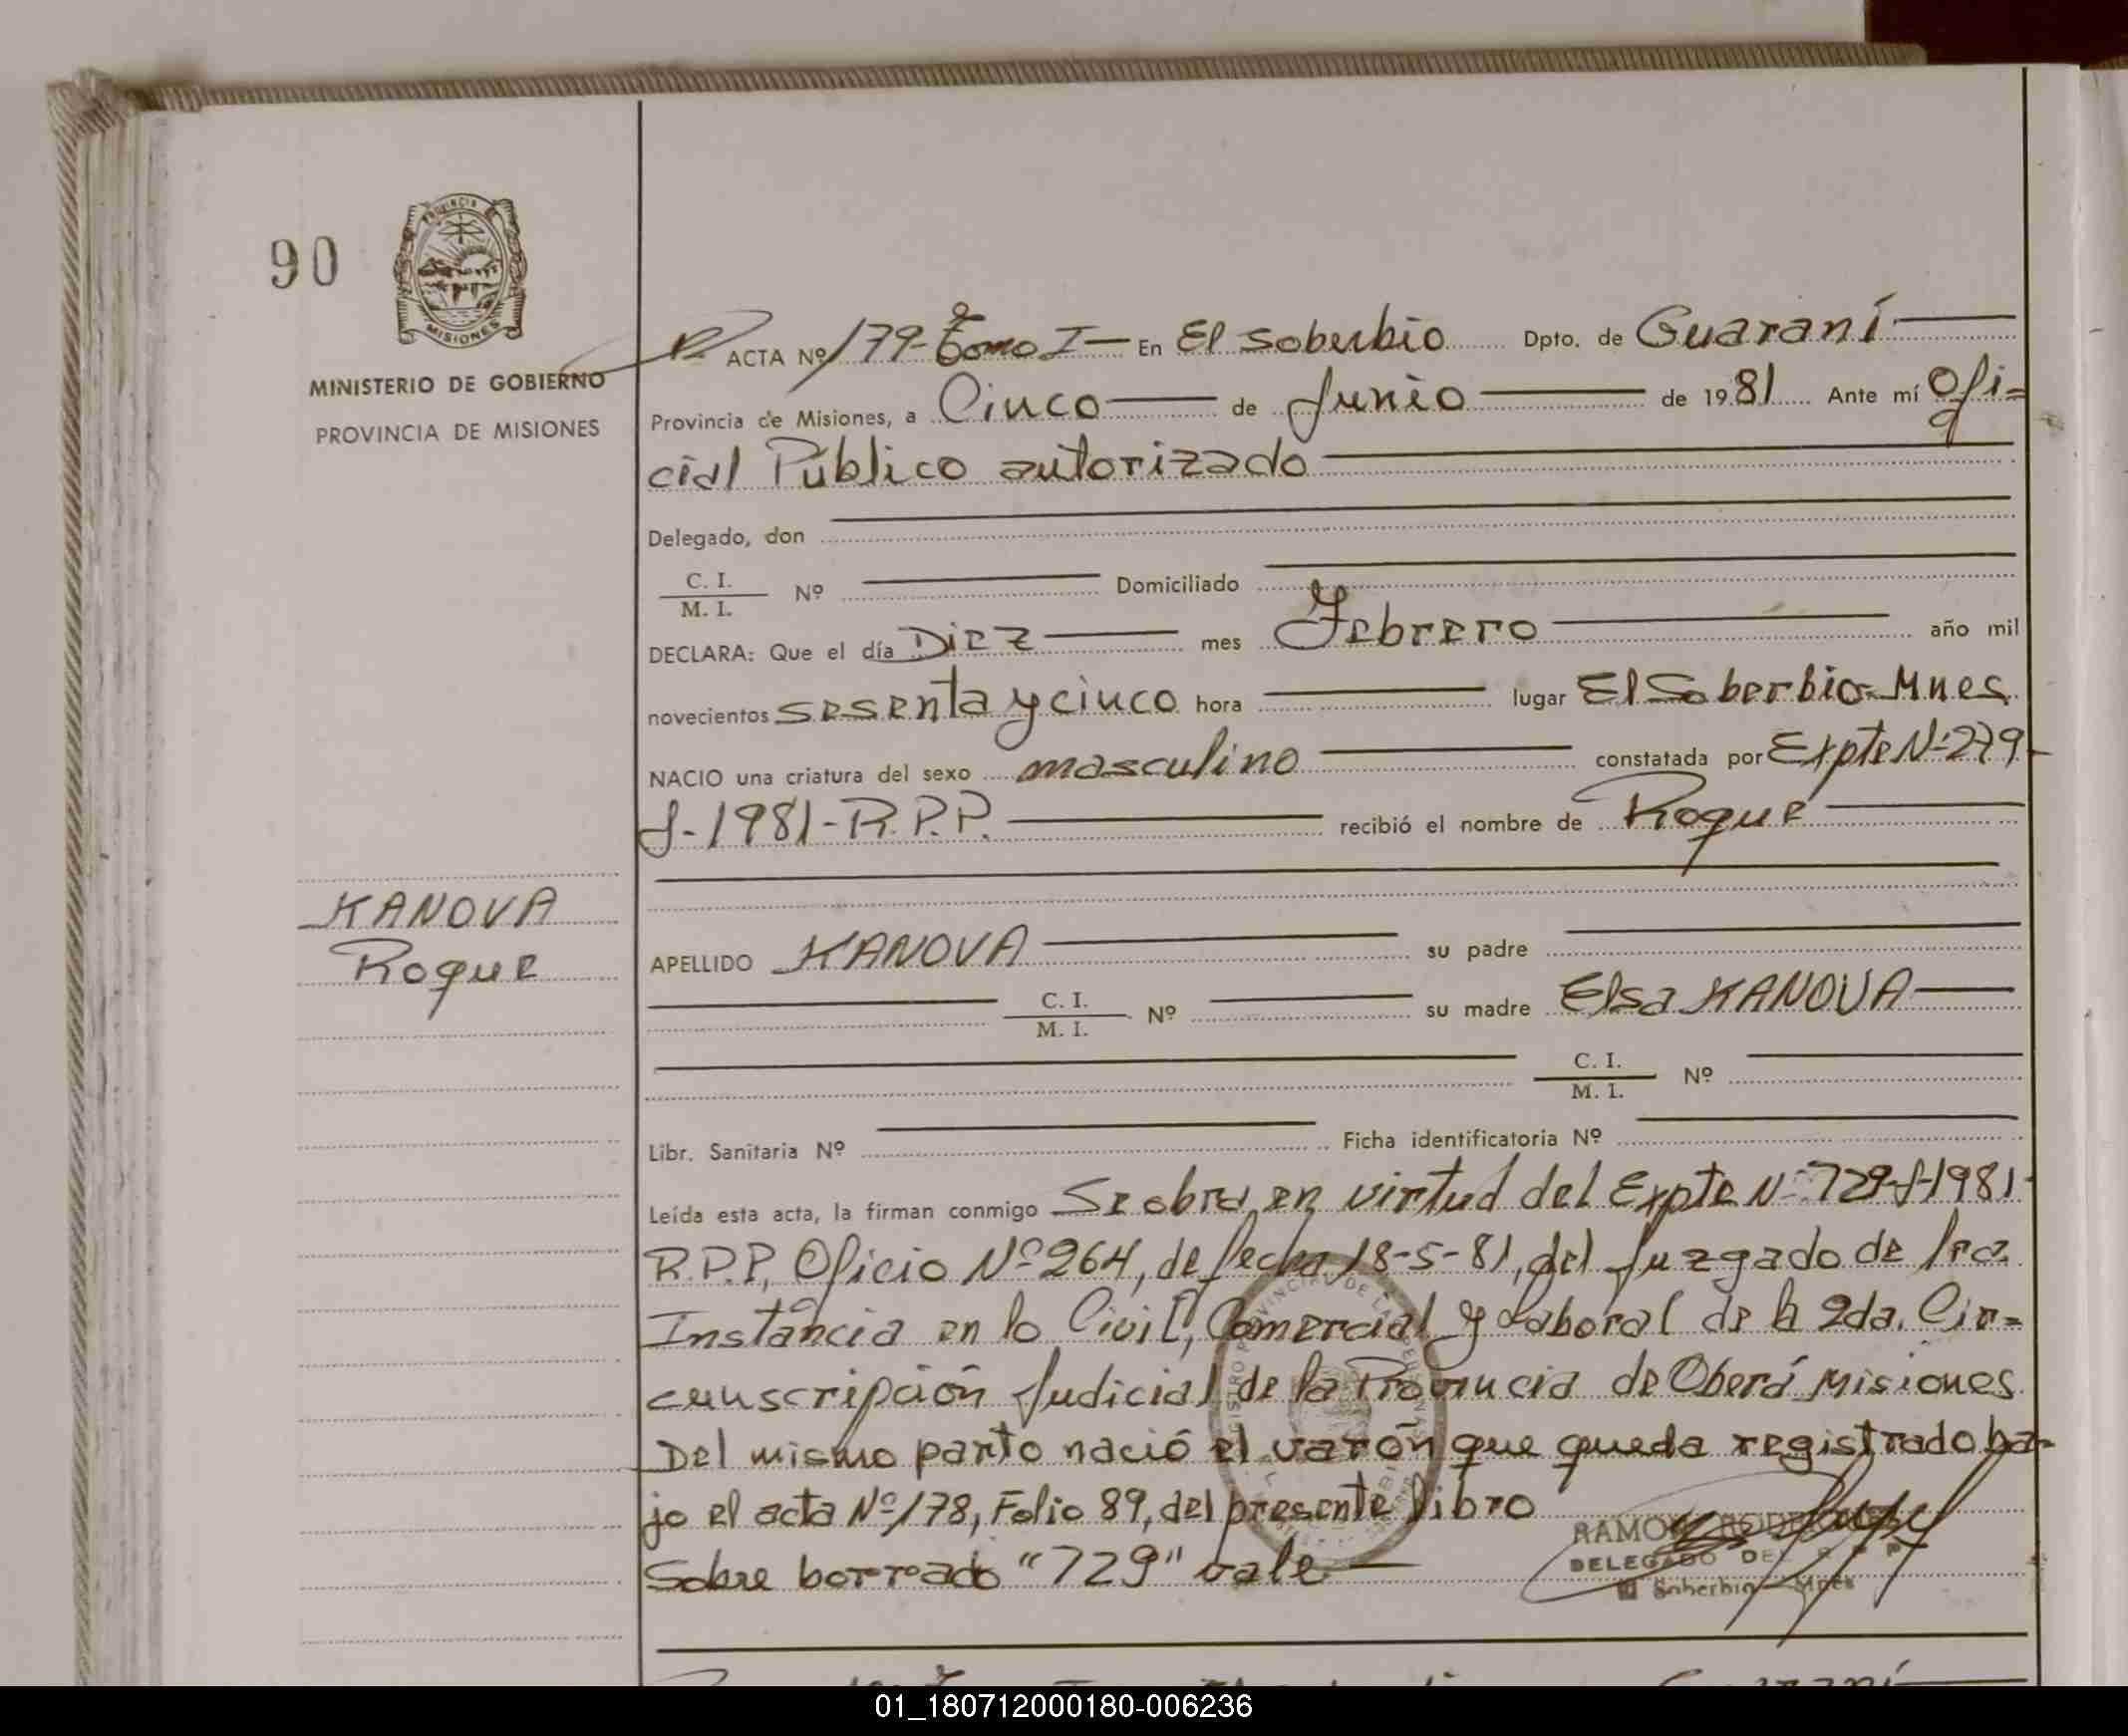 90
PROVINCIA DE
MISIONES
MINISTERIO DE GOBIERNO
PROVINCIA DE MISIONES
KANOVA
Roque
ACTA Nº 179-Tomo I- En El Soberbio Dpto. de Guaraní
Provincia de Misiones, a Cinco de Junio de 1981 Ante mí Ofi=
cial Público autorizado
Delegado, don
C. I.
M. I. Nº Domiciliado
DECLARA: Que el día Diez mes Febrero año mil
novecientos sesenta y cinco hora lugar El Soberbio-Mnes
NACIO una criatura del sexo masculino constatada por Expte Nº 279
J-1981-R.P.P. recibió el nombre de Roque
APELLIDO KANOVA su padre
C. I.
M. I. Nº su madre Elsa KANOVA
C. I.
M. I. Nº
Libr. Sanitaria Nº Ficha identificatoria Nº
Leída esta acta, la firman conmigo Se obra en virtud del Expte Nº 729-J-1981
R.P.P, Oficio Nº 264, de fecha 18-5-81, del Juzgado de 1ra.
Instancia en lo Civil, Comercial y Laboral de la 2da. Cir=
cunscripción Judicial de la Provincia de Oberá Misiones
Del mismo parto nació el varón que queda registrado ba-
jo el acta Nº 178, Folio 89, del presente libro
Sobre borrado "729" vale
RAMON
DELEGADO DEL R P P
El Soberbio - Mnes
01_180712000180-006236